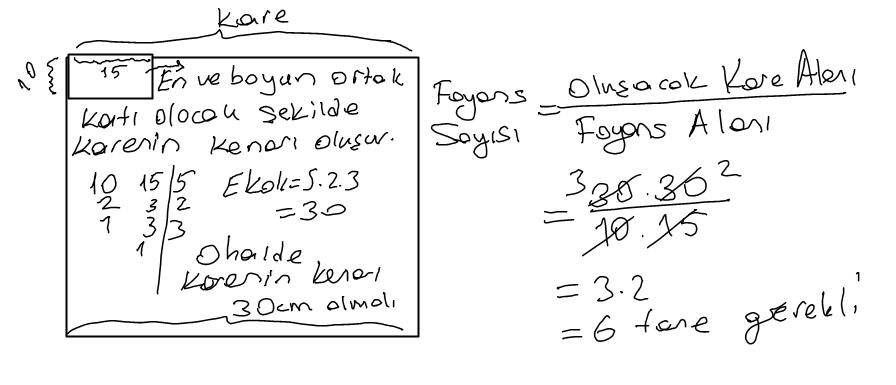 Kare
10
15
En ve boyun ortak
katı olacak şekilde
karenin kenarı oluşur.
10 15 | 5
2 3 | 2
1 3 | 3
1
Ekok=5.2.3
=30
O halde
karenin kenarı
30cm olmalı
Fayans Sayısı = Oluşacak Kare Alanı / Fayans Alanı
= 3 30.30 2 / 10.15
= 3.2
= 6 tane gerekli